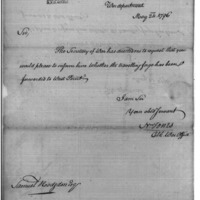 War department
May 24 1796
Sir,
The Secretary of War has directed me to request that you
would please to inform him whether the travelling forge has been
forwarded to West Point.
I am Sir
Your obt Servant
Nt Jones
Clk War Office
Samuel Hodgdon Esq